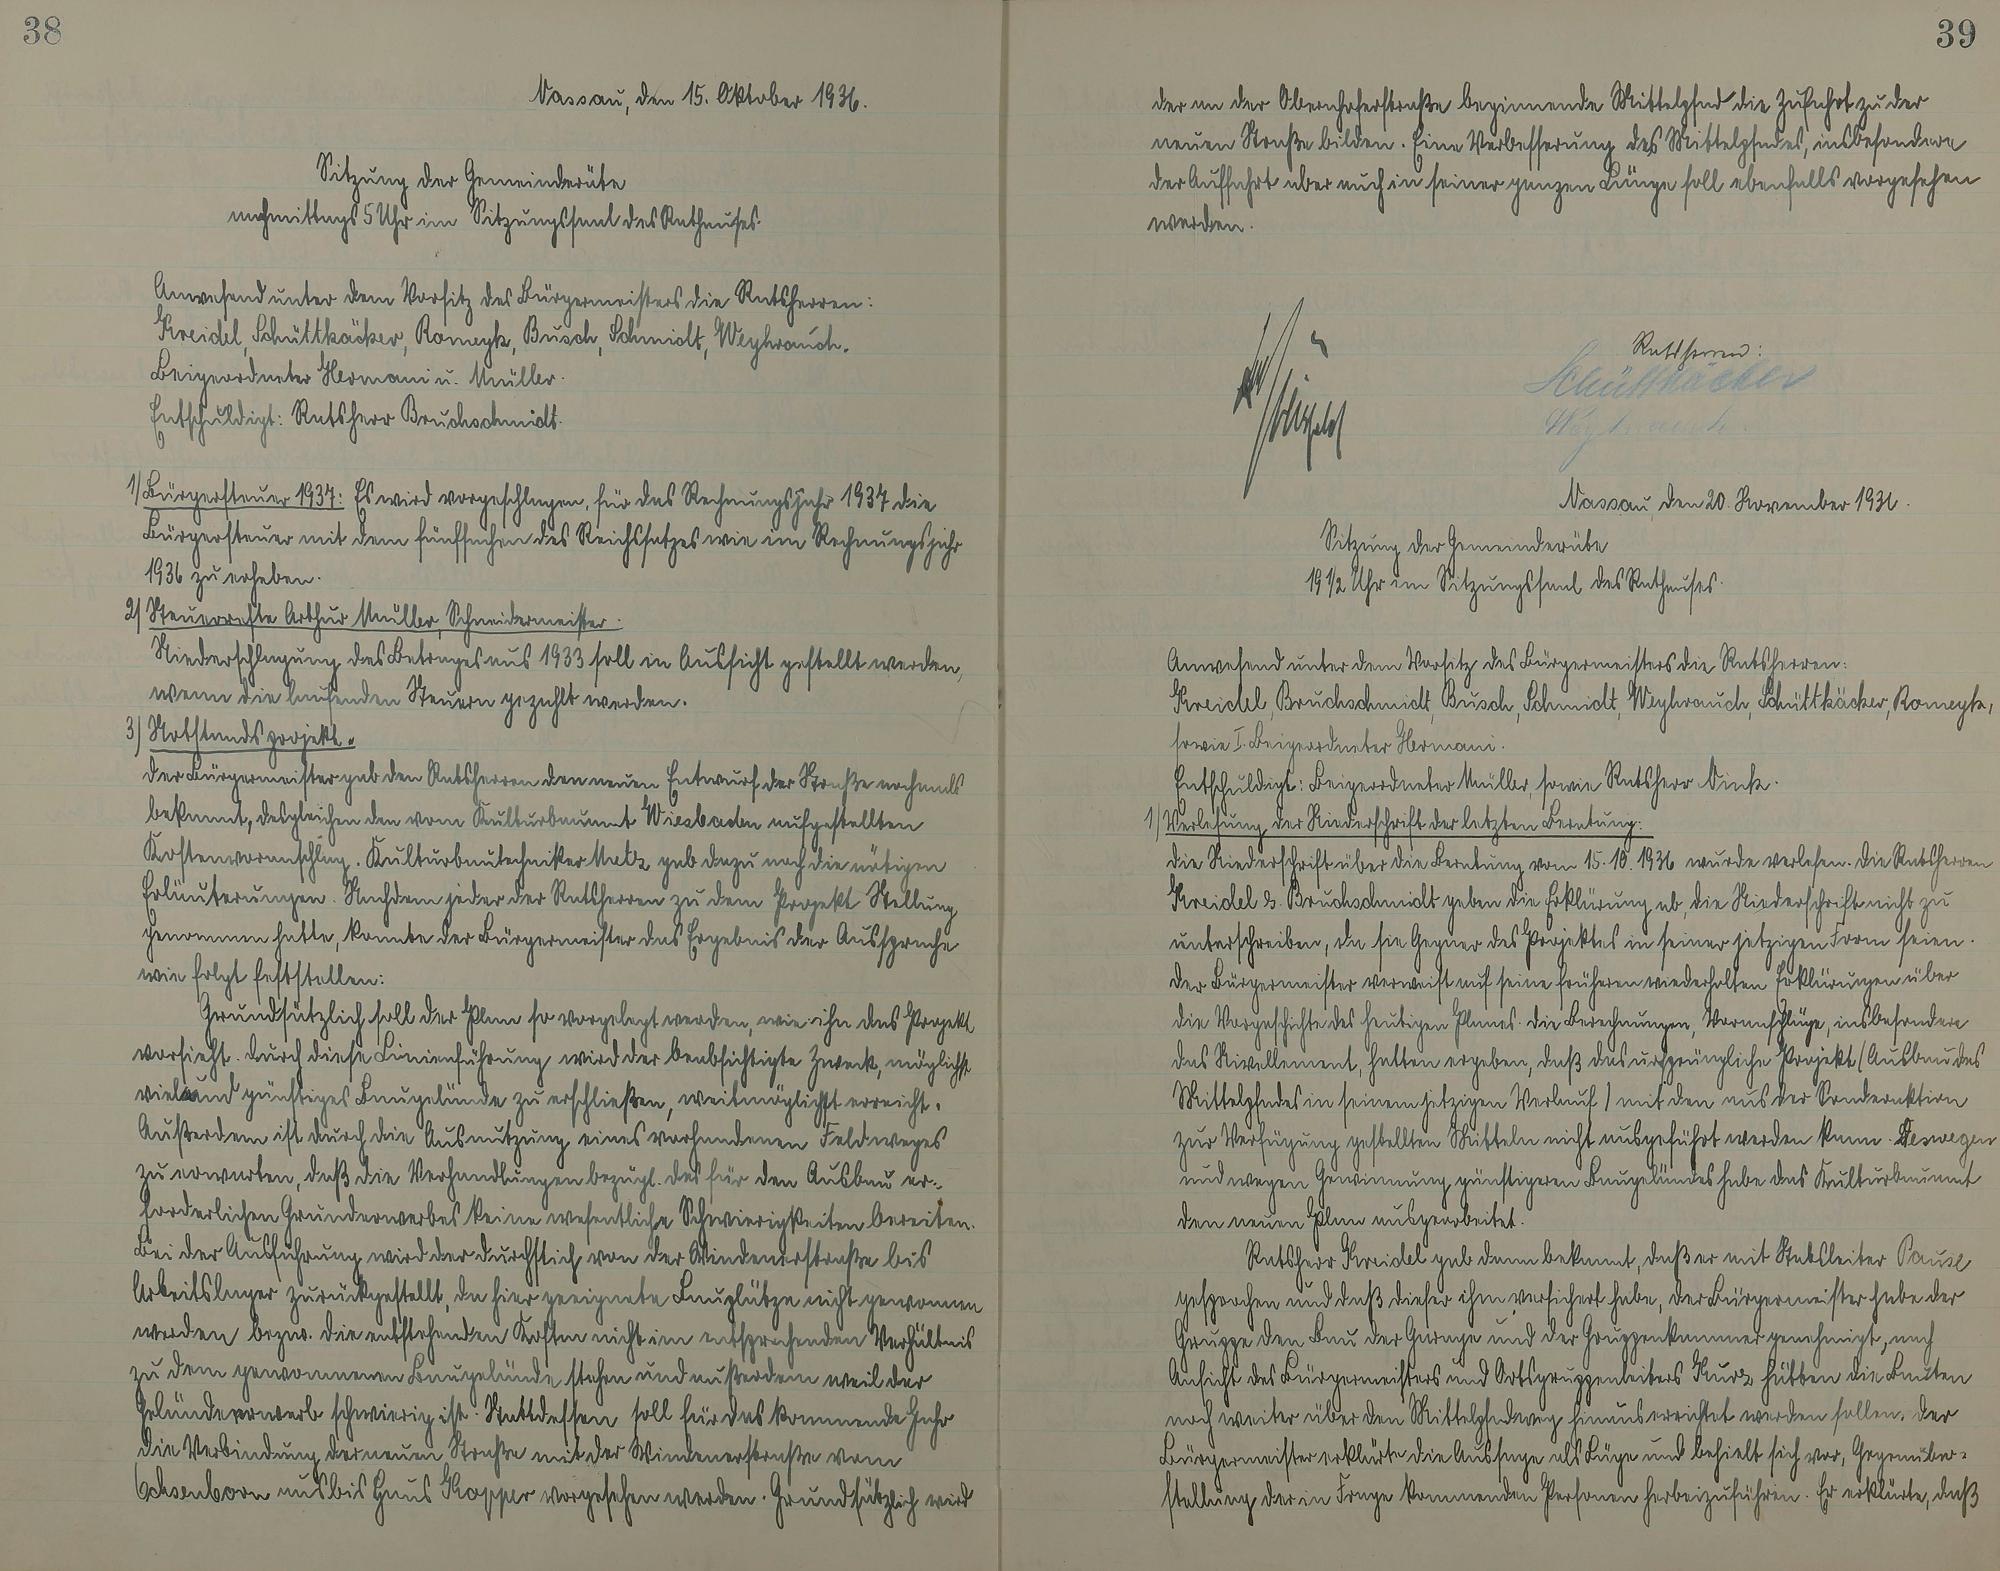 38
Nassau, den 15. Oktober 1936.
Sitzung der Gemeinderäte
nachmittags 5 Uhr im Sitzungssaal des Rathauses.
Anwesend unter dem Vorsitz des Bürgermeisters die Ratsherren:
Kreidel, Schüttkäcker, Romeyk, Busch, Schmidt, Weyhrauch.
Beigeordneter Hermani u. Müller.
Entschuldigt: Ratsherr Bruchschmidt.
1/ Bürgersteuer 1937: Es wird vorgeschlagen, für das Rechnungsjahr 1937 die
Bürgersteuer mit dem fünffachen des Reichssatzes wie im Rechnungsjahr
1936 zu erheben.
2/ Steuerreste Arthur Müller, Schneidermeister.
Niederschlagung des Betrages aus 1933 soll in Aussicht gestellt werden,
wenn die laufenden Steuern gezahlt werden.
3/ Notstandsprojekt.
Der Bürgermeister gab den Ratsherren den neuen Entwurf der Straße nochmals
bekannt, desgleichen den vom Kulturbauamt Wiesbaden aufgestellten
Kostenvoranschlag. Kulturbautechniker Metz gab dazu noch die nötigen
Erläuterungen. Nachdem jeder der Ratsherren zu dem Projekt Stellung
genommen hatte, konnte der Bürgermeister das Ergebnis der Aussprache
wie folgt feststellen:
Grundsätzlich soll der Plan so vorgelegt werden, wie ihn das Projekt
vorsieht. Durch diese Linienführung wird der beabsichtigte Zweck, möglichst
viel und günstiges Baugelände zu erschließen, weitmöglichst erreicht.
Außerdem ist durch die Ausnutzung eines vorhandenen Feldweges
zu erwarten, daß die Verhandlungen bezügl. des für den Ausbau er-
forderlichen Grunderwerbes keine wesentliche Schwierigkeiten bereiten.
Bei der Ausführung wird der Durchstich von der Windenerstraße bis
Arbeitslager zurückgestellt, da hier geeignete Bauplätze nicht gewonnen
werden bezw. die entstehenden Kosten nicht im entsprechenden Verhältnis
zu dem gewonnenen Baugelände stehen und außerdem weil der
Geländeerwerb schwierig ist. Stattdessen soll für das kommende Jahr
die Verbindung der neuen Straße mit der Windenerstraße vom
Ochsenborn aus bis Haus Kopper vorgesehen werden. Grundsätzlich wird
39
der an der Obernhoferstraße beginnende Mittelpfad die Zufahrt zu der
neuen Straße bilden. Eine Verbesserung des Mittelpfades, insbesondere
der Auffahrt aber auch in seiner ganzen Länge soll ebenfalls vorgesehen
werden.
Ratsherren:
Schüttkäcker
Weyhrauch
Nassau, den 20. November 1936.
Sitzung der Gemeinderäte
19 1/2 Uhr im Sitzungssaal des Rathauses.
Anwesend unter dem Vorsitz des Bürgermeisters die Ratsherren:
Kreidel, Bruchschmidt, Busch, Schmidt, Weyhrauch, Schüttkäcker, Romeyk,
sowie I. Beigeordneter Hermani.
Entschuldigt: Beigeordneter Müller, sowie Ratsherr Vink.
1/ Verlesung der Niederschrift der letzten Beratung:
Die Niederschrift über die Beratung vom 15. 10. 1936 wurde verlesen. Die Ratsherren
Kreidel & Bruchschmidt geben die Erklärung ab, die Niederschrift nicht zu
unterschreiben, da sie Gegner des Projektes in seiner jetzigen Form seien.
Der Bürgermeister verweist auf seine früheren wiederholten Erklärungen über
die Vorgeschichte des heutigen Planes. Die Berechnungen, Voranschläge, insbesondere
das Nivellement, hatten ergeben, daß das ursprüngliche Projekt (Ausbau des
Mittelpfades in seinem jetzigen Verlauf) mit den aus der Sonderaktion
zur Verfügung gestellten Mitteln nicht ausgeführt werden kann. Deswegen
und wegen Gewinnung günstigeren Baugeländes habe das Kulturbauamt
den neuen Plan ausgearbeitet.
Ratsherr Kreidel gab dann bekannt, daß er mit Stabsleiter Pausl
gesprochen und daß dieser ihm versichert habe, der Bürgermeister habe der
Gruppe den Bau der Garage und der Gruppenkammer genehmigt, nach
Ansicht des Bürgermeisters und Ortsgruppenleiters Kurz hätten die Bauten
noch weiter über den Mittelpfadweg hinaus errichtet werden sollen. Der
Bürgermeister erklärte die Aussage als Lüge und behielt sich vor, Gegenüber-
stellung der in Frage kommenden Personen herbeizuführen. Er erklärte, daß